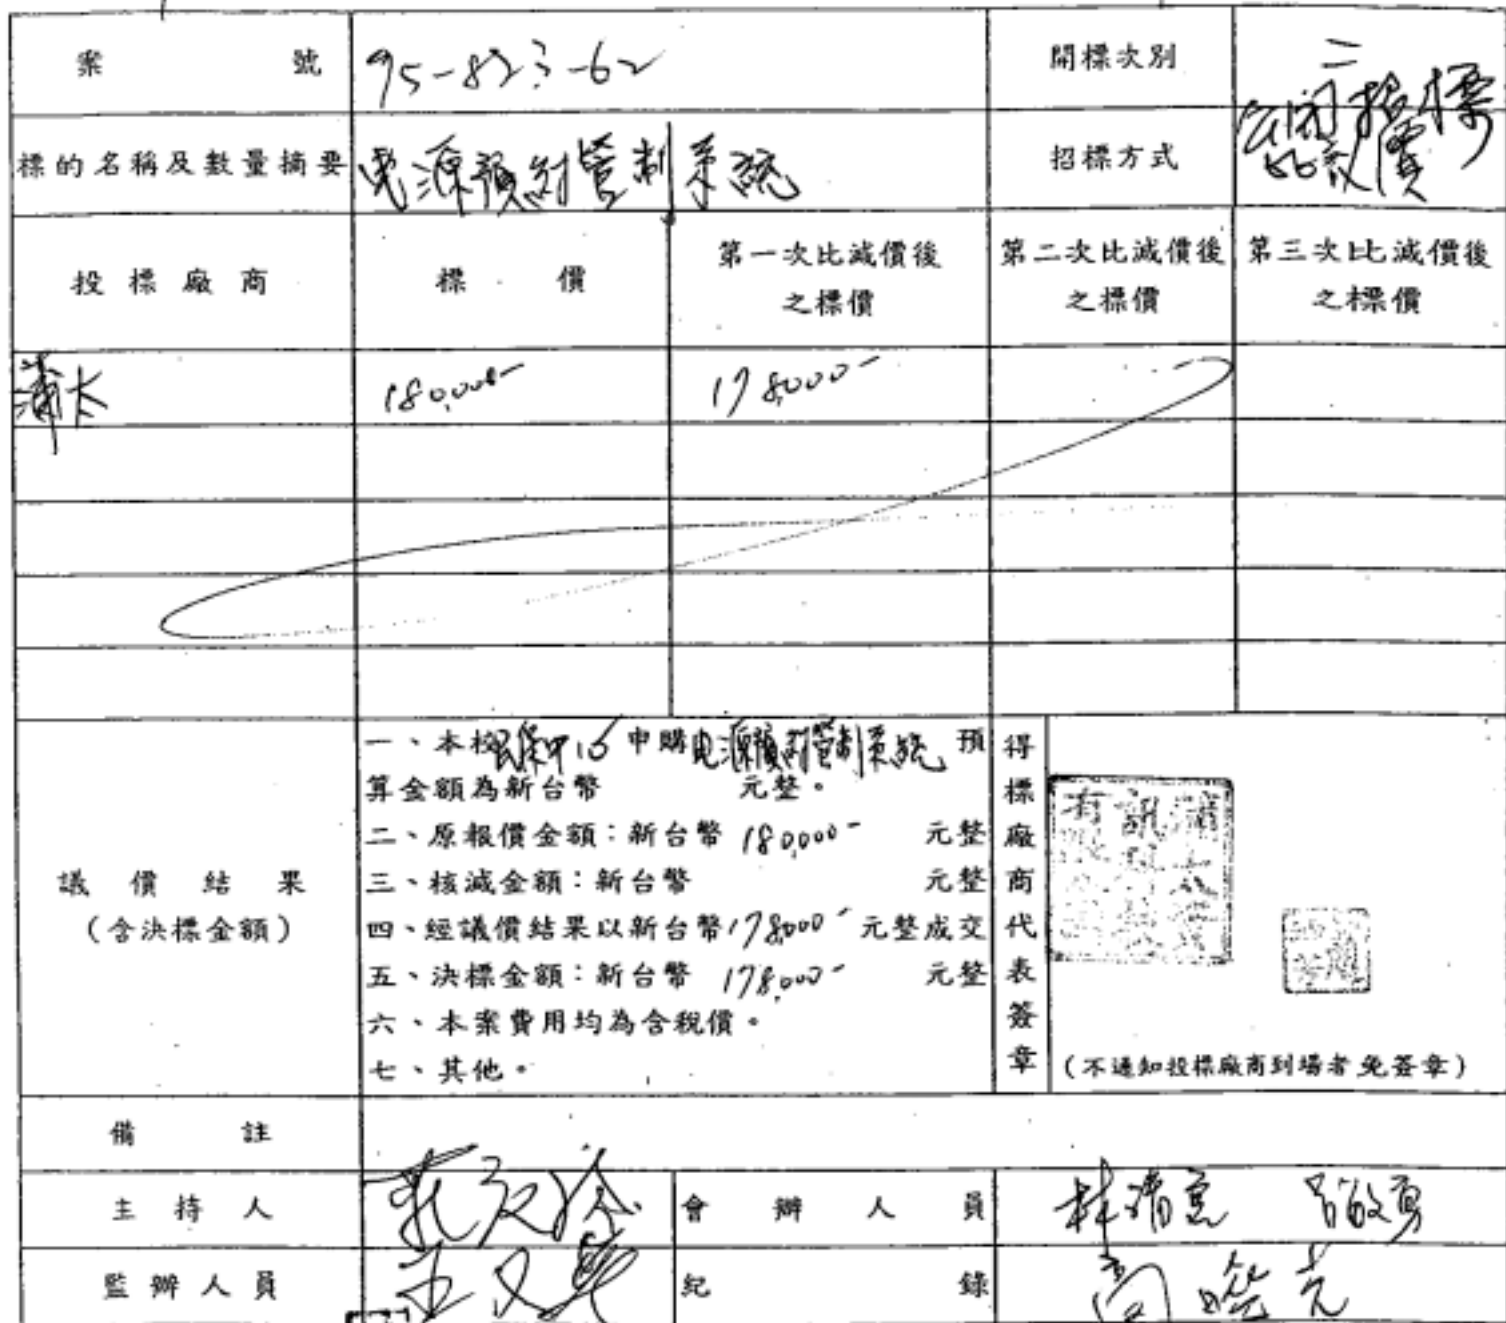 案號 95-823-62 開標次別 二
標的名稱及數量摘要 電源預付管制系統 招標方式 公開招標 議價
投標廠商 標價 第一次比減價後之標價 第二次比減價後之標價 第三次比減價後之標價
浦太 180,000- 178,000-
議價結果
(含決標金額)
一、本校 申購電源預付管制系統 預
算金額為新台幣 元整。
二、原報價金額:新台幣 180,000- 元整
三、核減金額:新台幣 元整
四、經議價結果以新台幣178,000- 元整成交
五、決標金額:新台幣 178,000- 元整
六、本案費用均為含稅價。
七、其他。
得標廠商代表簽章
(不通知投標廠商到場者免簽章)
備註
主持人 會辦人員 林清
監辦人員 紀錄